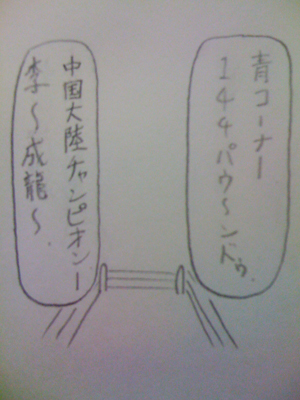 青コーナー
144パウ〜ンドゥ.
中国大陸チャンピオンー
李〜成龍〜.